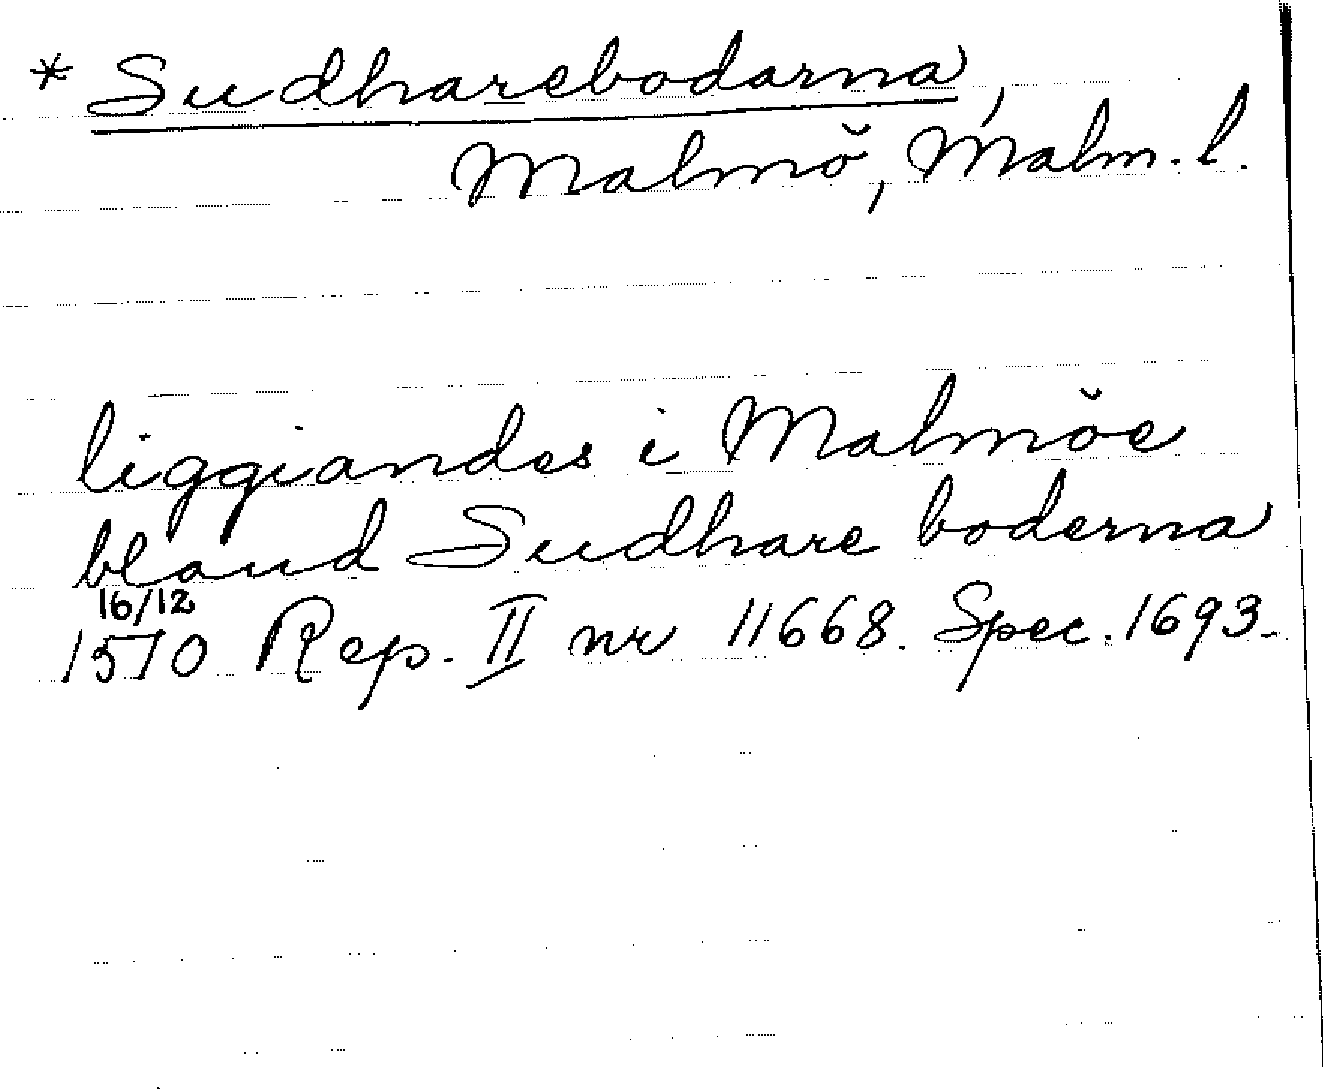 * Sudharebodarna,
Malmö, Malm. l.
liggiandes i Malmöe
bland Sudhare boderna
16/12
1510 Rep. II nr 11668. Spec. 1693.